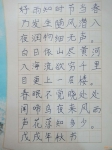 好雨知时节当春
乃发生随风潜入
夜润物细无声
白日依山尽黄河
入海流欲穷千里
目更上一层楼
春眠不觉晓处处
闻啼鸟夜来风雨
声花落知多少
戊戌年秋书